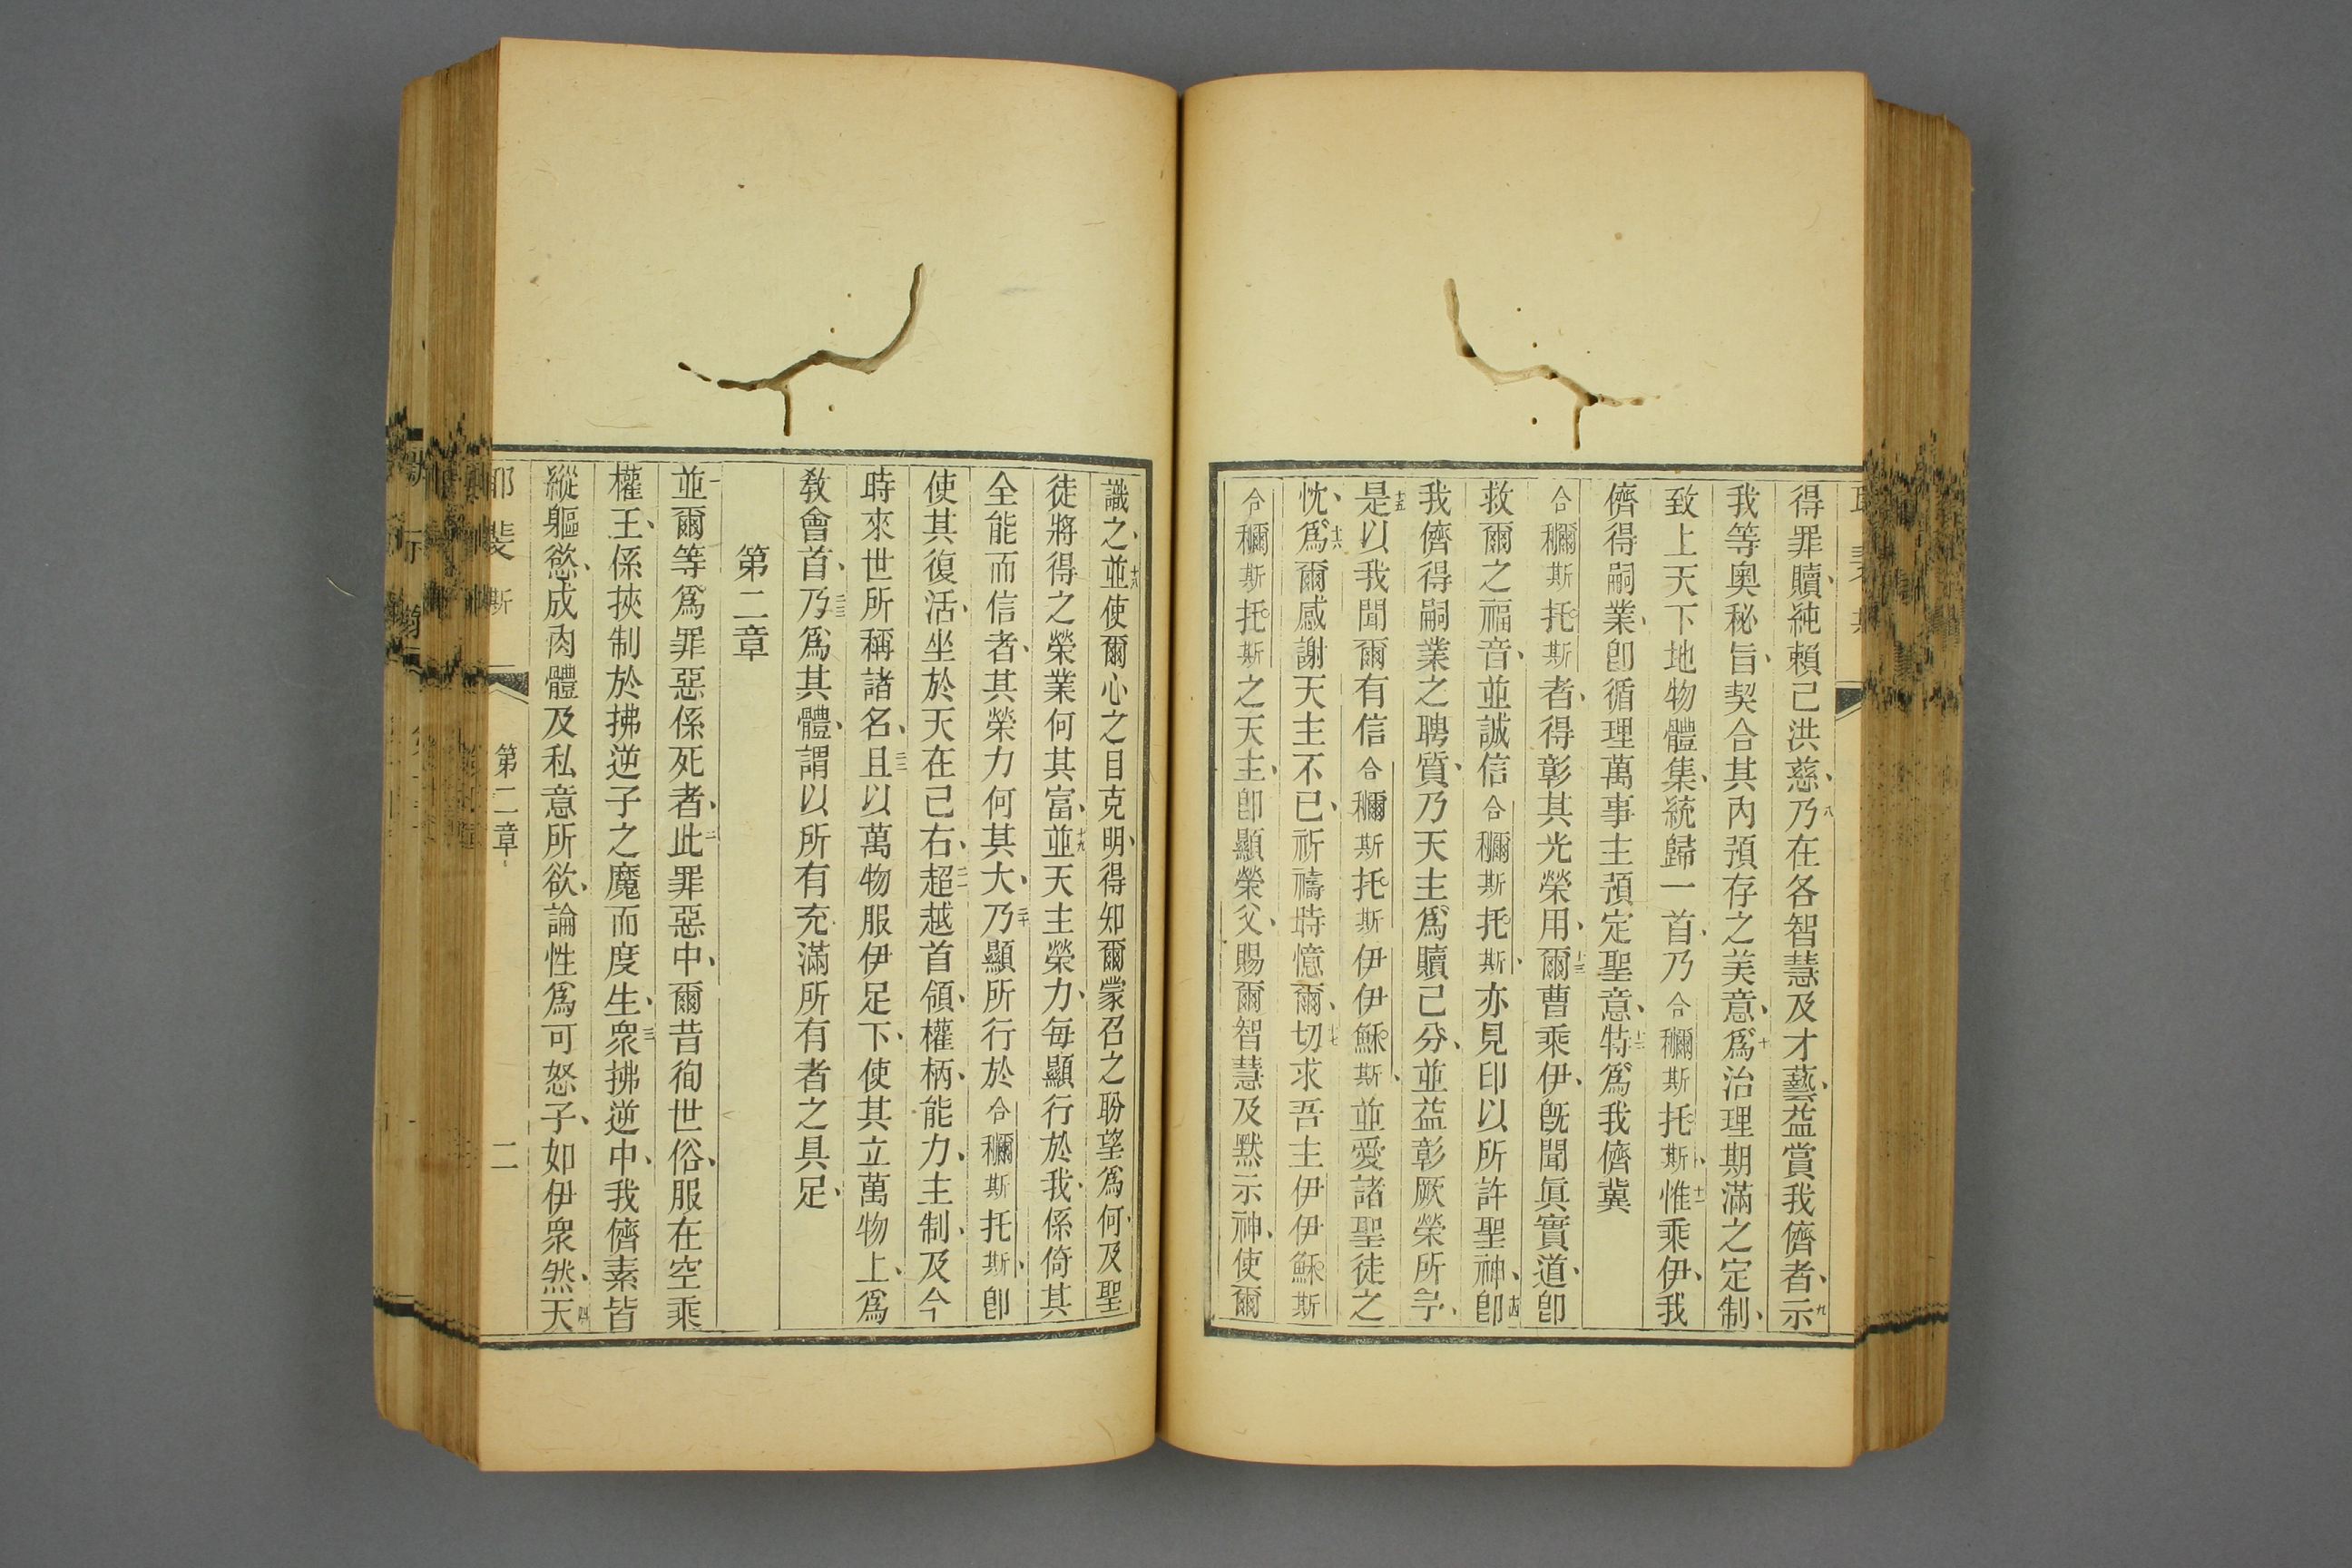 得罪贖、純賴己洪慈、八乃在各智慧及才藝、益賞我儕者、九示
我等奧秘旨、契合其內預存之美意、十爲治理期滿之定制、
致上天下地物體集、統歸一首、乃合穪斯托斯、十一惟乘伊、我
儕得嗣業、卽循理萬事主預定聖意、十二特爲我儕冀
合穪斯托斯者、得彰其光榮用、十三爾曹乘伊、旣聞眞實道、卽
救爾之福音、並誠信合穪斯托斯、亦見印以所許聖神、十四卽
我儕得嗣業之聘質、乃天主爲贖己分、並益彰厥榮所𠂔、
十五是以我聞爾有信合穪斯托斯伊伊穌斯、並愛諸聖徒之
忱、十六爲爾感謝天主不已、祈禱時憶爾、十七切求吾主伊伊穌斯
合穪斯托斯之天主、卽顯榮父、賜爾智慧及默示神、使爾
識之、十八並使爾心之目克明、得知爾蒙召之盼望爲何、及聖
徒將得之榮業何其富、十九並天主榮力、每顯行於我、係倚其
全能而信者、其榮力何其大、二十乃顯所行於合穪斯托斯、卽
使其復活、坐於天在己右、二一超越首領、權柄、能力、主制、及今
時來世所稱諸名、二二且以萬物服伊足下、使其立萬物上、爲
敎會首、二三乃爲其體、謂以所有充滿所有者之具足、
第二章
一並爾等爲罪惡係死者、二此罪惡中、爾昔徇世俗、服在空乘
權王、係挾制於拂逆子之魔而度生、三衆拂逆中、我儕素皆
縱軀慾、成肉體及私意所欲、論性爲可怒子、如伊衆然、四天
耶斐斯 第二章 二